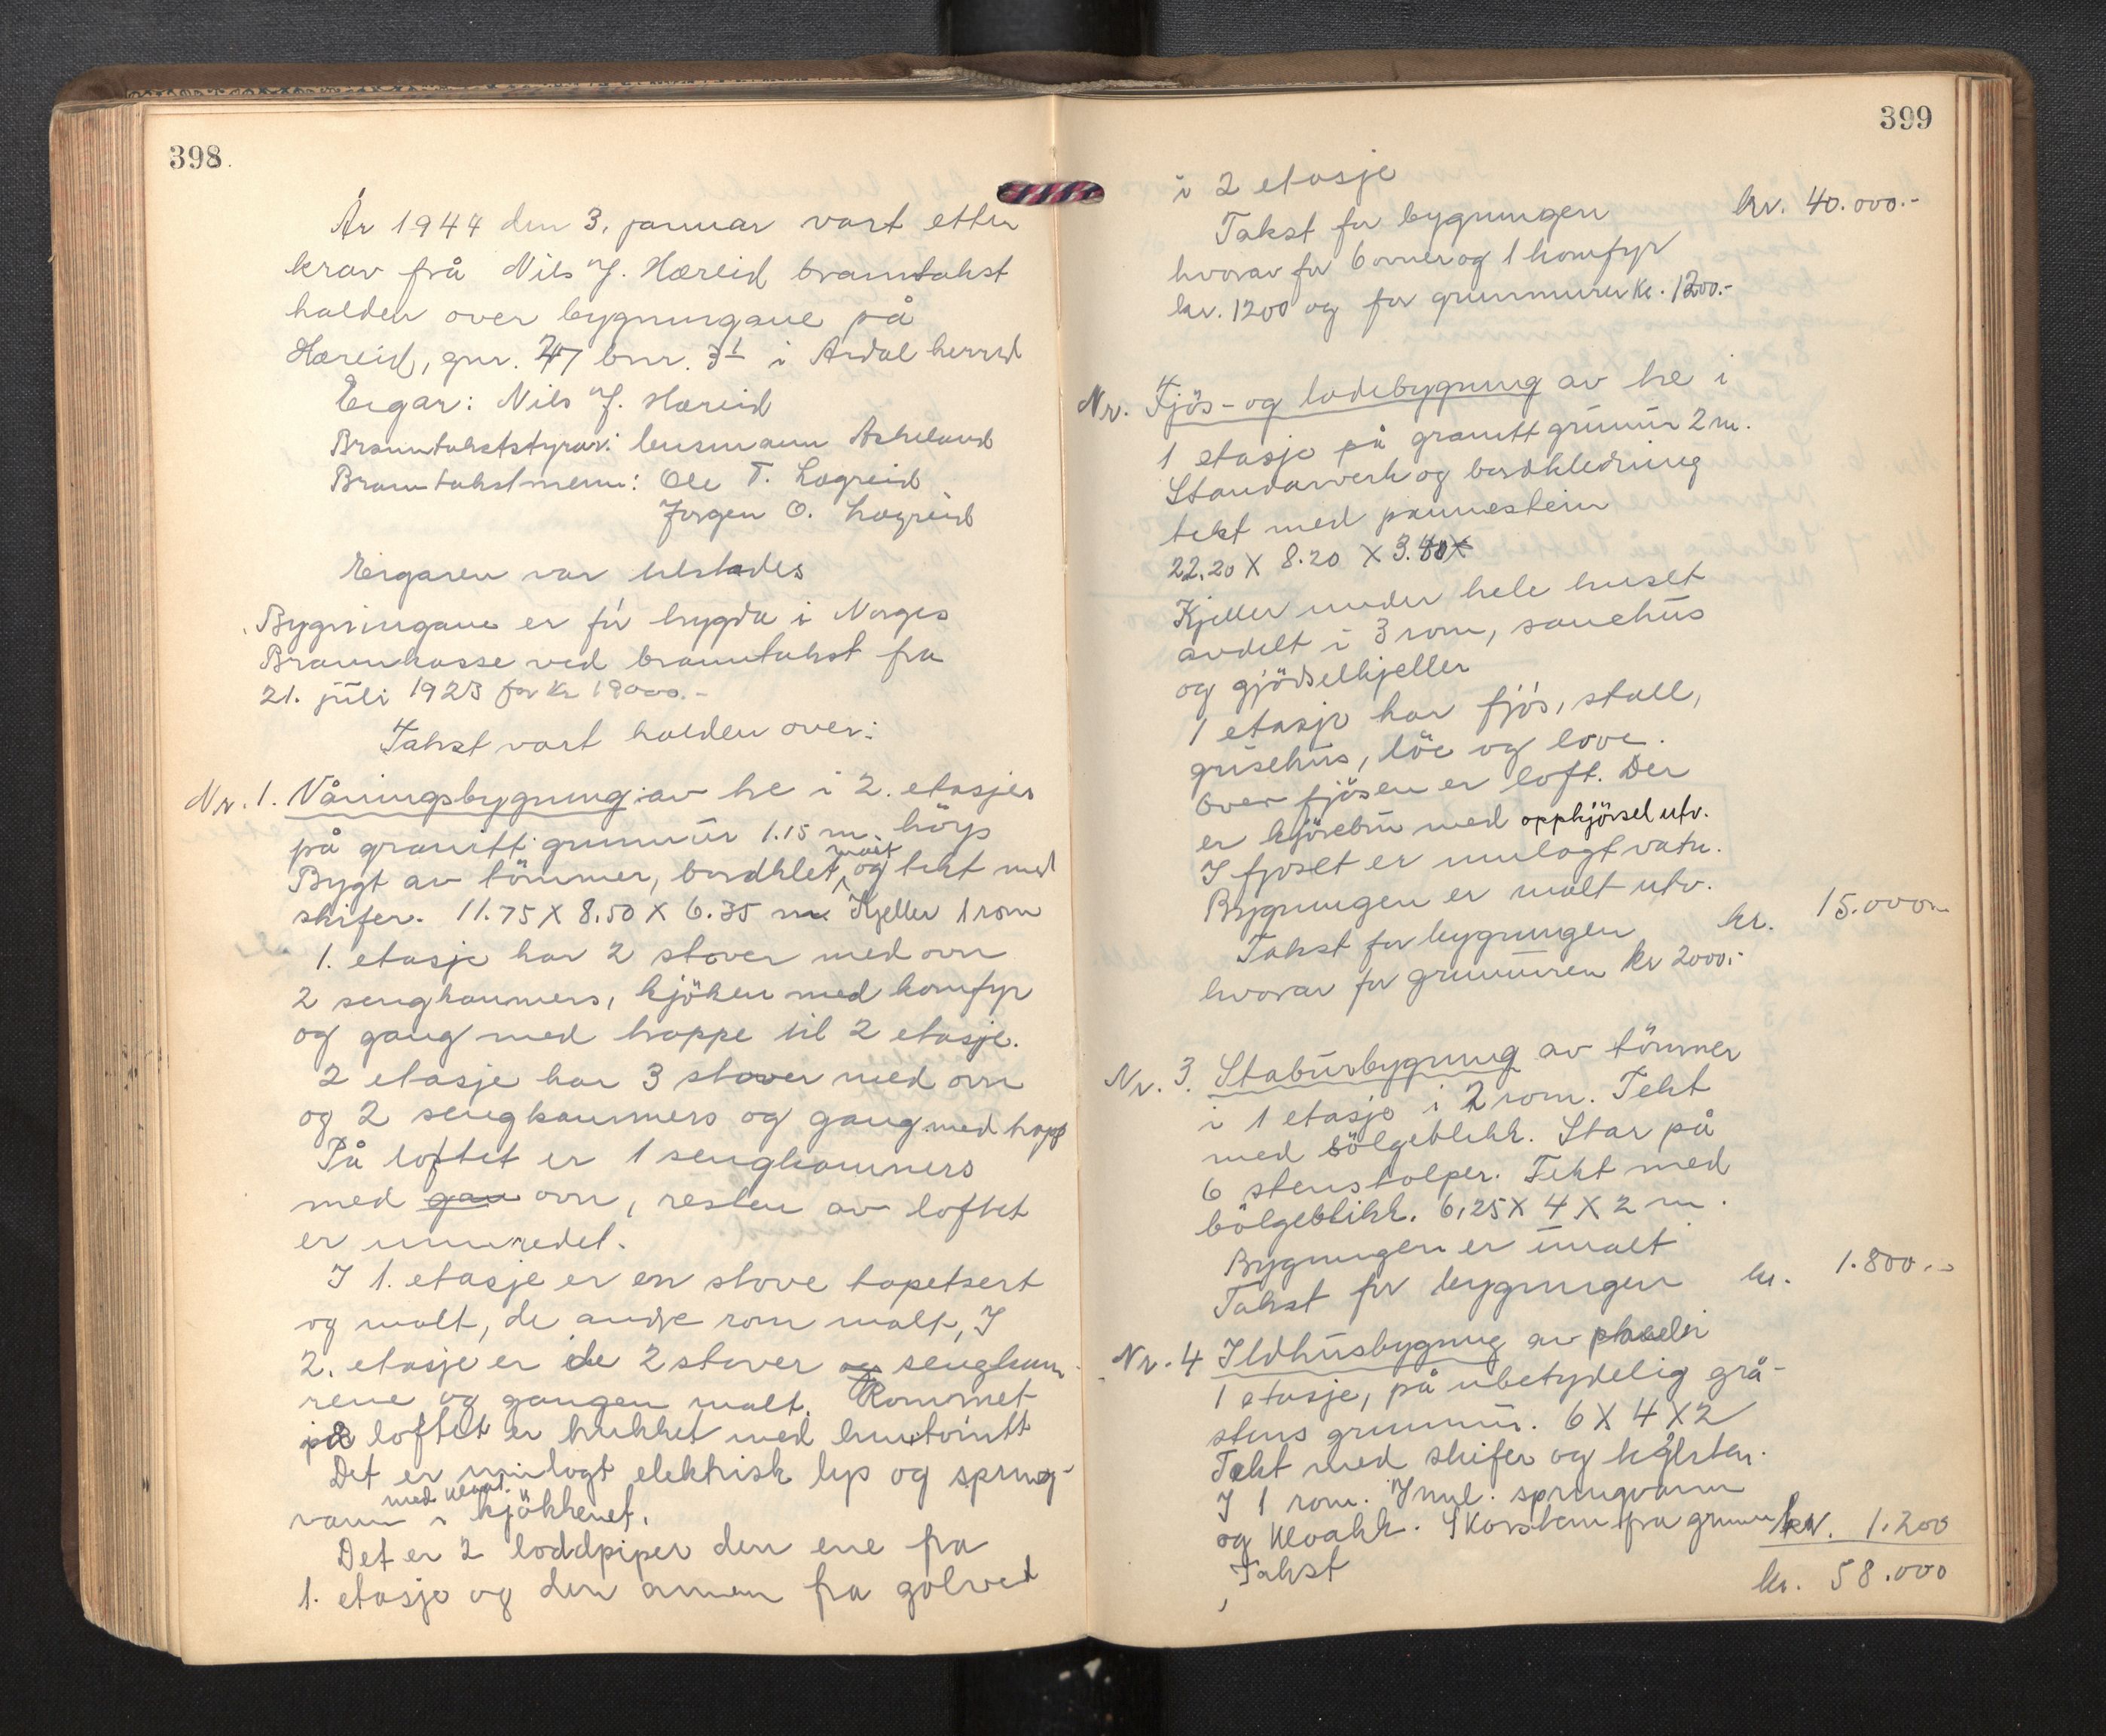 398.
År 1944 den 3. januar vart etter
krav frå Nils J. Hæreid branntakst
halden over bygningane på
Hæreid, gnr. 47 bnr. 3 i Ardal herred
Eigar: Nils J. Hæreid
Branntakststyrar: lensmann Askeland
Branntakstmenn: Ole T. Lægreid
Jørgen O. Lægreid
Eigaren var tilstades
Bygningane er før trygda i Norges
Brannkasse ved branntakst fra
21. juli 1923 for kr 19000.-
Takst vart halden over:
Nr. 1. Våningsbygning av tre i 2. etasjer
på granitt grunnmur 1.15 m. höys
Bygt av tömmer, bordklet, malt og tekt med
skifer. 11.75 X 8.50 X 6.35 m Kjeller 1 rom
1. etasje har 2 stover med ovn
2 sengkammers, kjöken med komfyr
og gang med trappe til 2 etasje.
2 etasje har 3 stover med ovn
og 2 sengkammers og gang med trapp
På loftet er 1 sengkammers
med gan ovn, resten av loftet
er uinnredet.
I 1. etasje er en stove tapetsert
og malt, de andre rom malt, I
2. etasje er de 2 stover og sengkam-
rene og gangen malt. Rommet
på loftet er trukket med huntonitt
Det er innlagt elektrisk lys og spring-
vann med kloakk i kjökkenet.
Det er 2 loddpiper den ene fra
1. etasje og den annen fra golvet
399
i 2 etasje
Takst for bygningen kr. 40.000.-
hvorav for 6 ovner og 1 komfyr
kr. 1200 og for grunnmuren kr. 1200.-
Nr. Fjös- og lödebygning av tre i
1 etasje på granitt grunnmur 2 m.
Standarverk og bordkledning
tekt med pannestein
22.20 X 8.20 X 3.40 X
Kjeller under hele huset
avdelt i 3 rom, sauehus
og gjödselkjeller
1 etasje har fjös, stall,
grisehus, löe og love.
Over fjösen er loft. Der
er kjörebru med oppkjörsel utv.
I fjoset er innlagt vatn.
Bygningen er malt utv.
Takst for bygningen kr. 15.000.-
hvorav for grunnmuren kr 2000.-
Nr. 3. Stabursbygning av tömmer
i 1 etasje i 2 rom. Tekt
med bölgeblikk. Star på
6 stenstolper. Tekt med
bölgeblikk. 6,25 X 4 X 2 m.
Bygningen er umalt
Takst for bygningen kr. 1.800.-
Nr. 4 Ildhusbygning av planker i
1 etasje, på ubetydelig grå-
stens grunnmur. 6 X 4 X 2
Tekt med skifer og taksten.
I 1 rom. Innl. springvann
og kloakk. Skorsten fra grunnen
Takst kr. 1.200
kr. 58.000